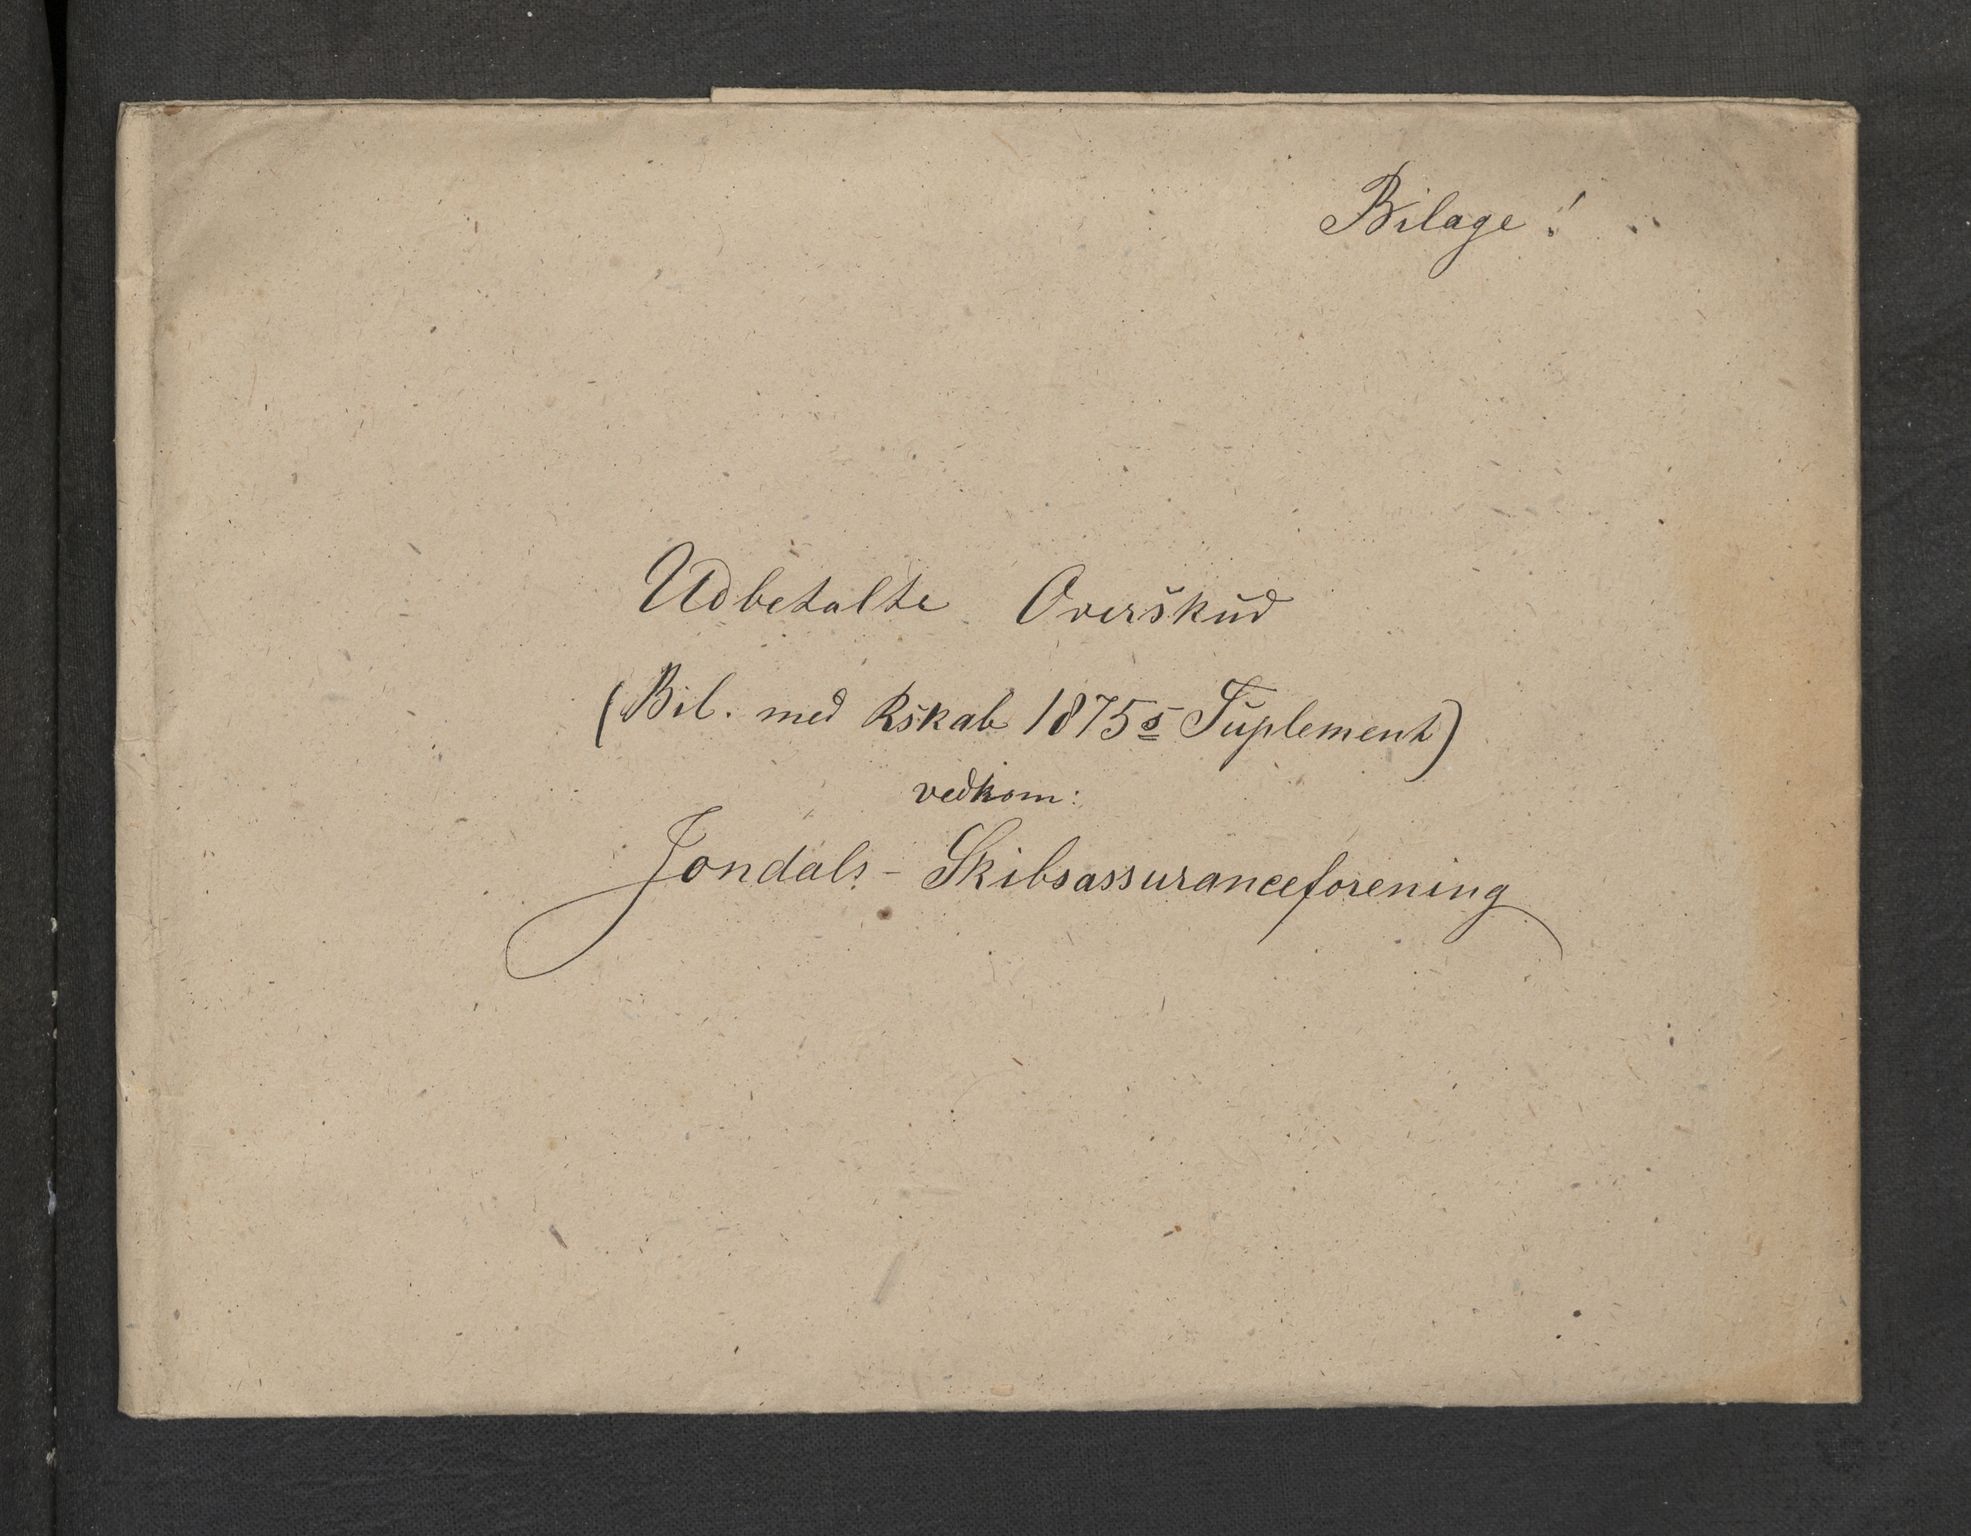 Bilage!
Udbetalte Overskud
(Bil. med Rskab 1875s Suplement)
vedkom:
Jondals - Skibsassuranceforening